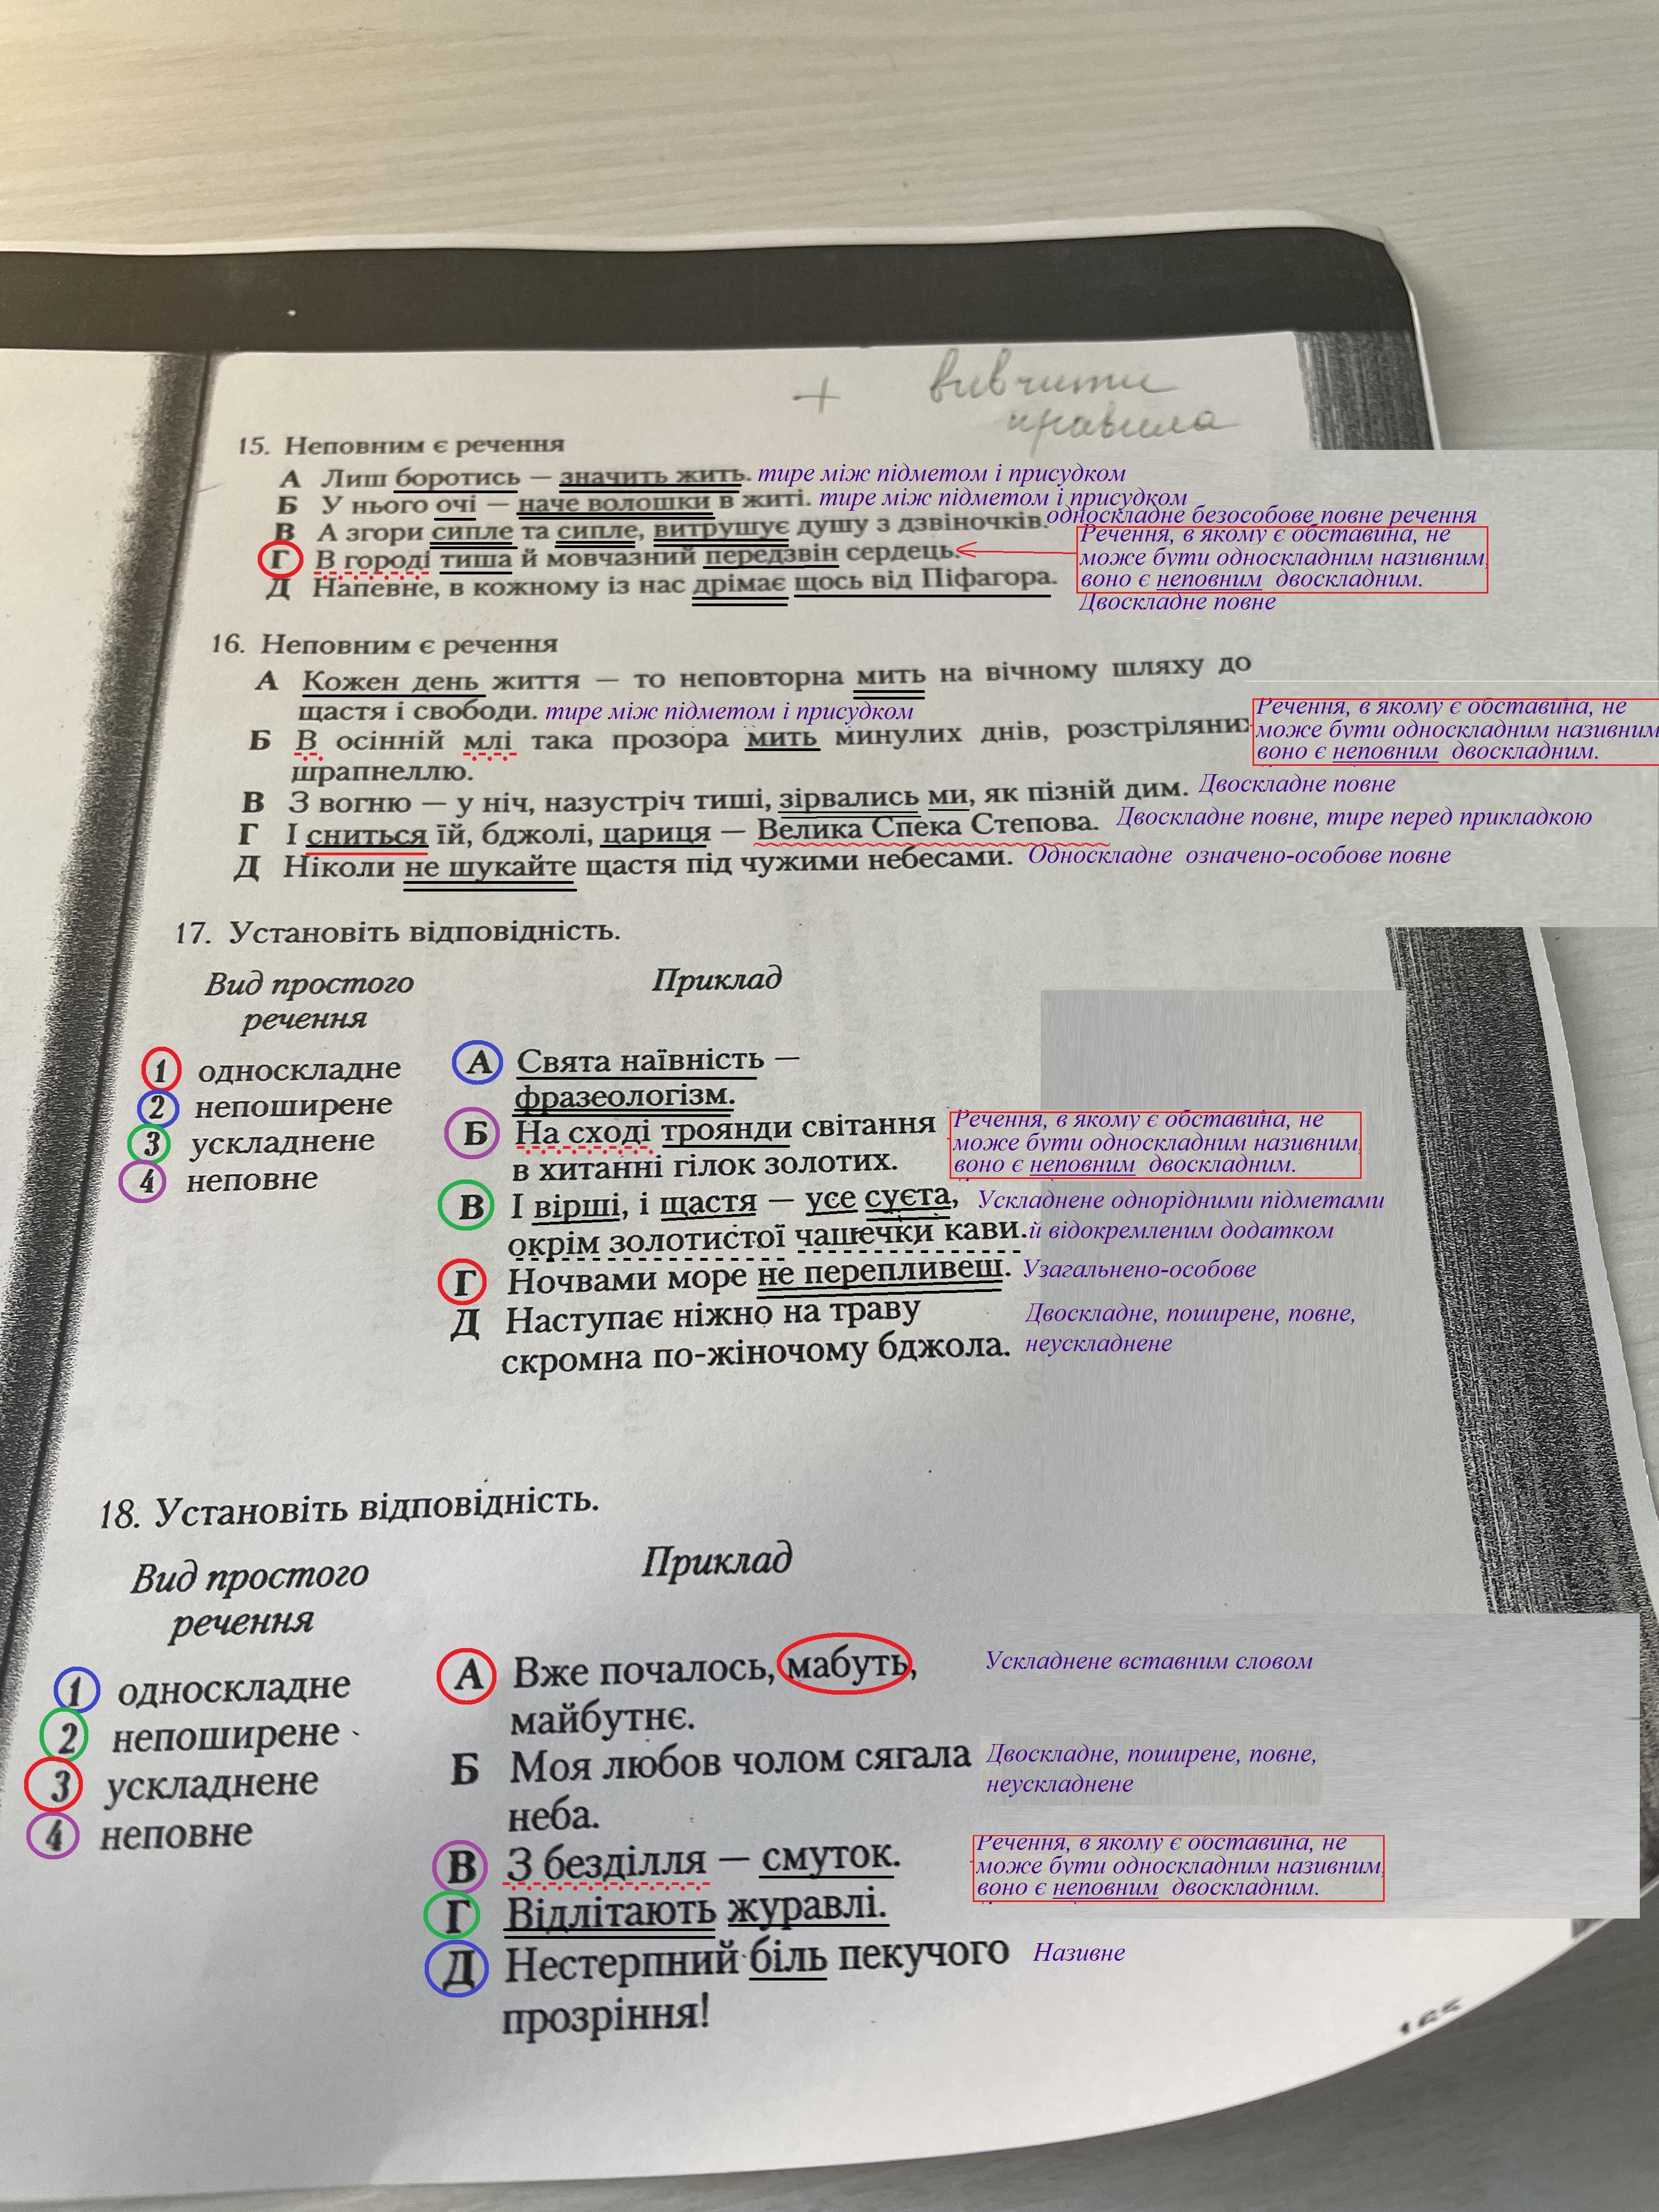 + вивчити
правила
15. Неповним є речення
А Лиш боротись — значить жить. тире між підметом і присудком
Б У нього очі — наче волошки в житі. тире між підметом і присудком
В А згори сипле та сипле, витрушує душу з дзвіночків. односкладне безособове повне речення
Г В городі тиша й мовчазний передзвін сердець.
Речення, в якому є обставина, не
може бути односкладним називним,
воно є неповним двоскладним.
Д Напевне, в кожному із нас дрімає щось від Піфагора.
Двоскладне повне
16. Неповним є речення
А Кожен день життя — то неповторна мить на вічному шляху до
щастя і свободи. тире між підметом і присудком
Б В осінній млі така прозора мить минулих днів, розстріляних
шрапнеллю.
Речення, в якому є обставина, не
може бути односкладним називним
воно є неповним двоскладним.
В З вогню — у ніч, назустріч тиші, зірвались ми, як пізній дим. Двоскладне повне
Г І сниться їй, бджолі, цариця — Велика Спека Степова. Двоскладне повне, тире перед прикладкою
Д Ніколи не шукайте щастя під чужими небесами. Односкладне означено-особове повне
17. Установіть відповідність.
Вид простого
речення
Приклад
1 односкладне
2 непоширене
3 ускладнене
4 неповне
А Свята наївність —
фразеологізм.
Б На сході троянди світання
в хитанні гілок золотих.
Речення, в якому є обставина, не
може бути односкладним називним,
воно є неповним двоскладним.
В І вірші, і щастя — усе суєта, Ускладнене однорідними підметами
окрім золотистої чашечки кави. й відокремленим додатком
Г Ночвами море не перепливеш. Узагальнено-особове
Д Наступає ніжно на траву
скромна по-жіночому бджола.
Двоскладне, поширене, повне,
неускладнене
18. Установіть відповідність.
Вид простого
речення
Приклад
1 односкладне
2 непоширене
3 ускладнене
4 неповне
А Вже почалось, мабуть, Ускладнене вставним словом
майбутнє.
Б Моя любов чолом сягала
неба.
Двоскладне, поширене, повне,
неускладнене
В З безділля — смуток.
Речення, в якому є обставина, не
може бути односкладним називним,
воно є неповним двоскладним.
Г Відлітають журавлі.
Д Нестерпний біль пекучого Називне
прозріння!